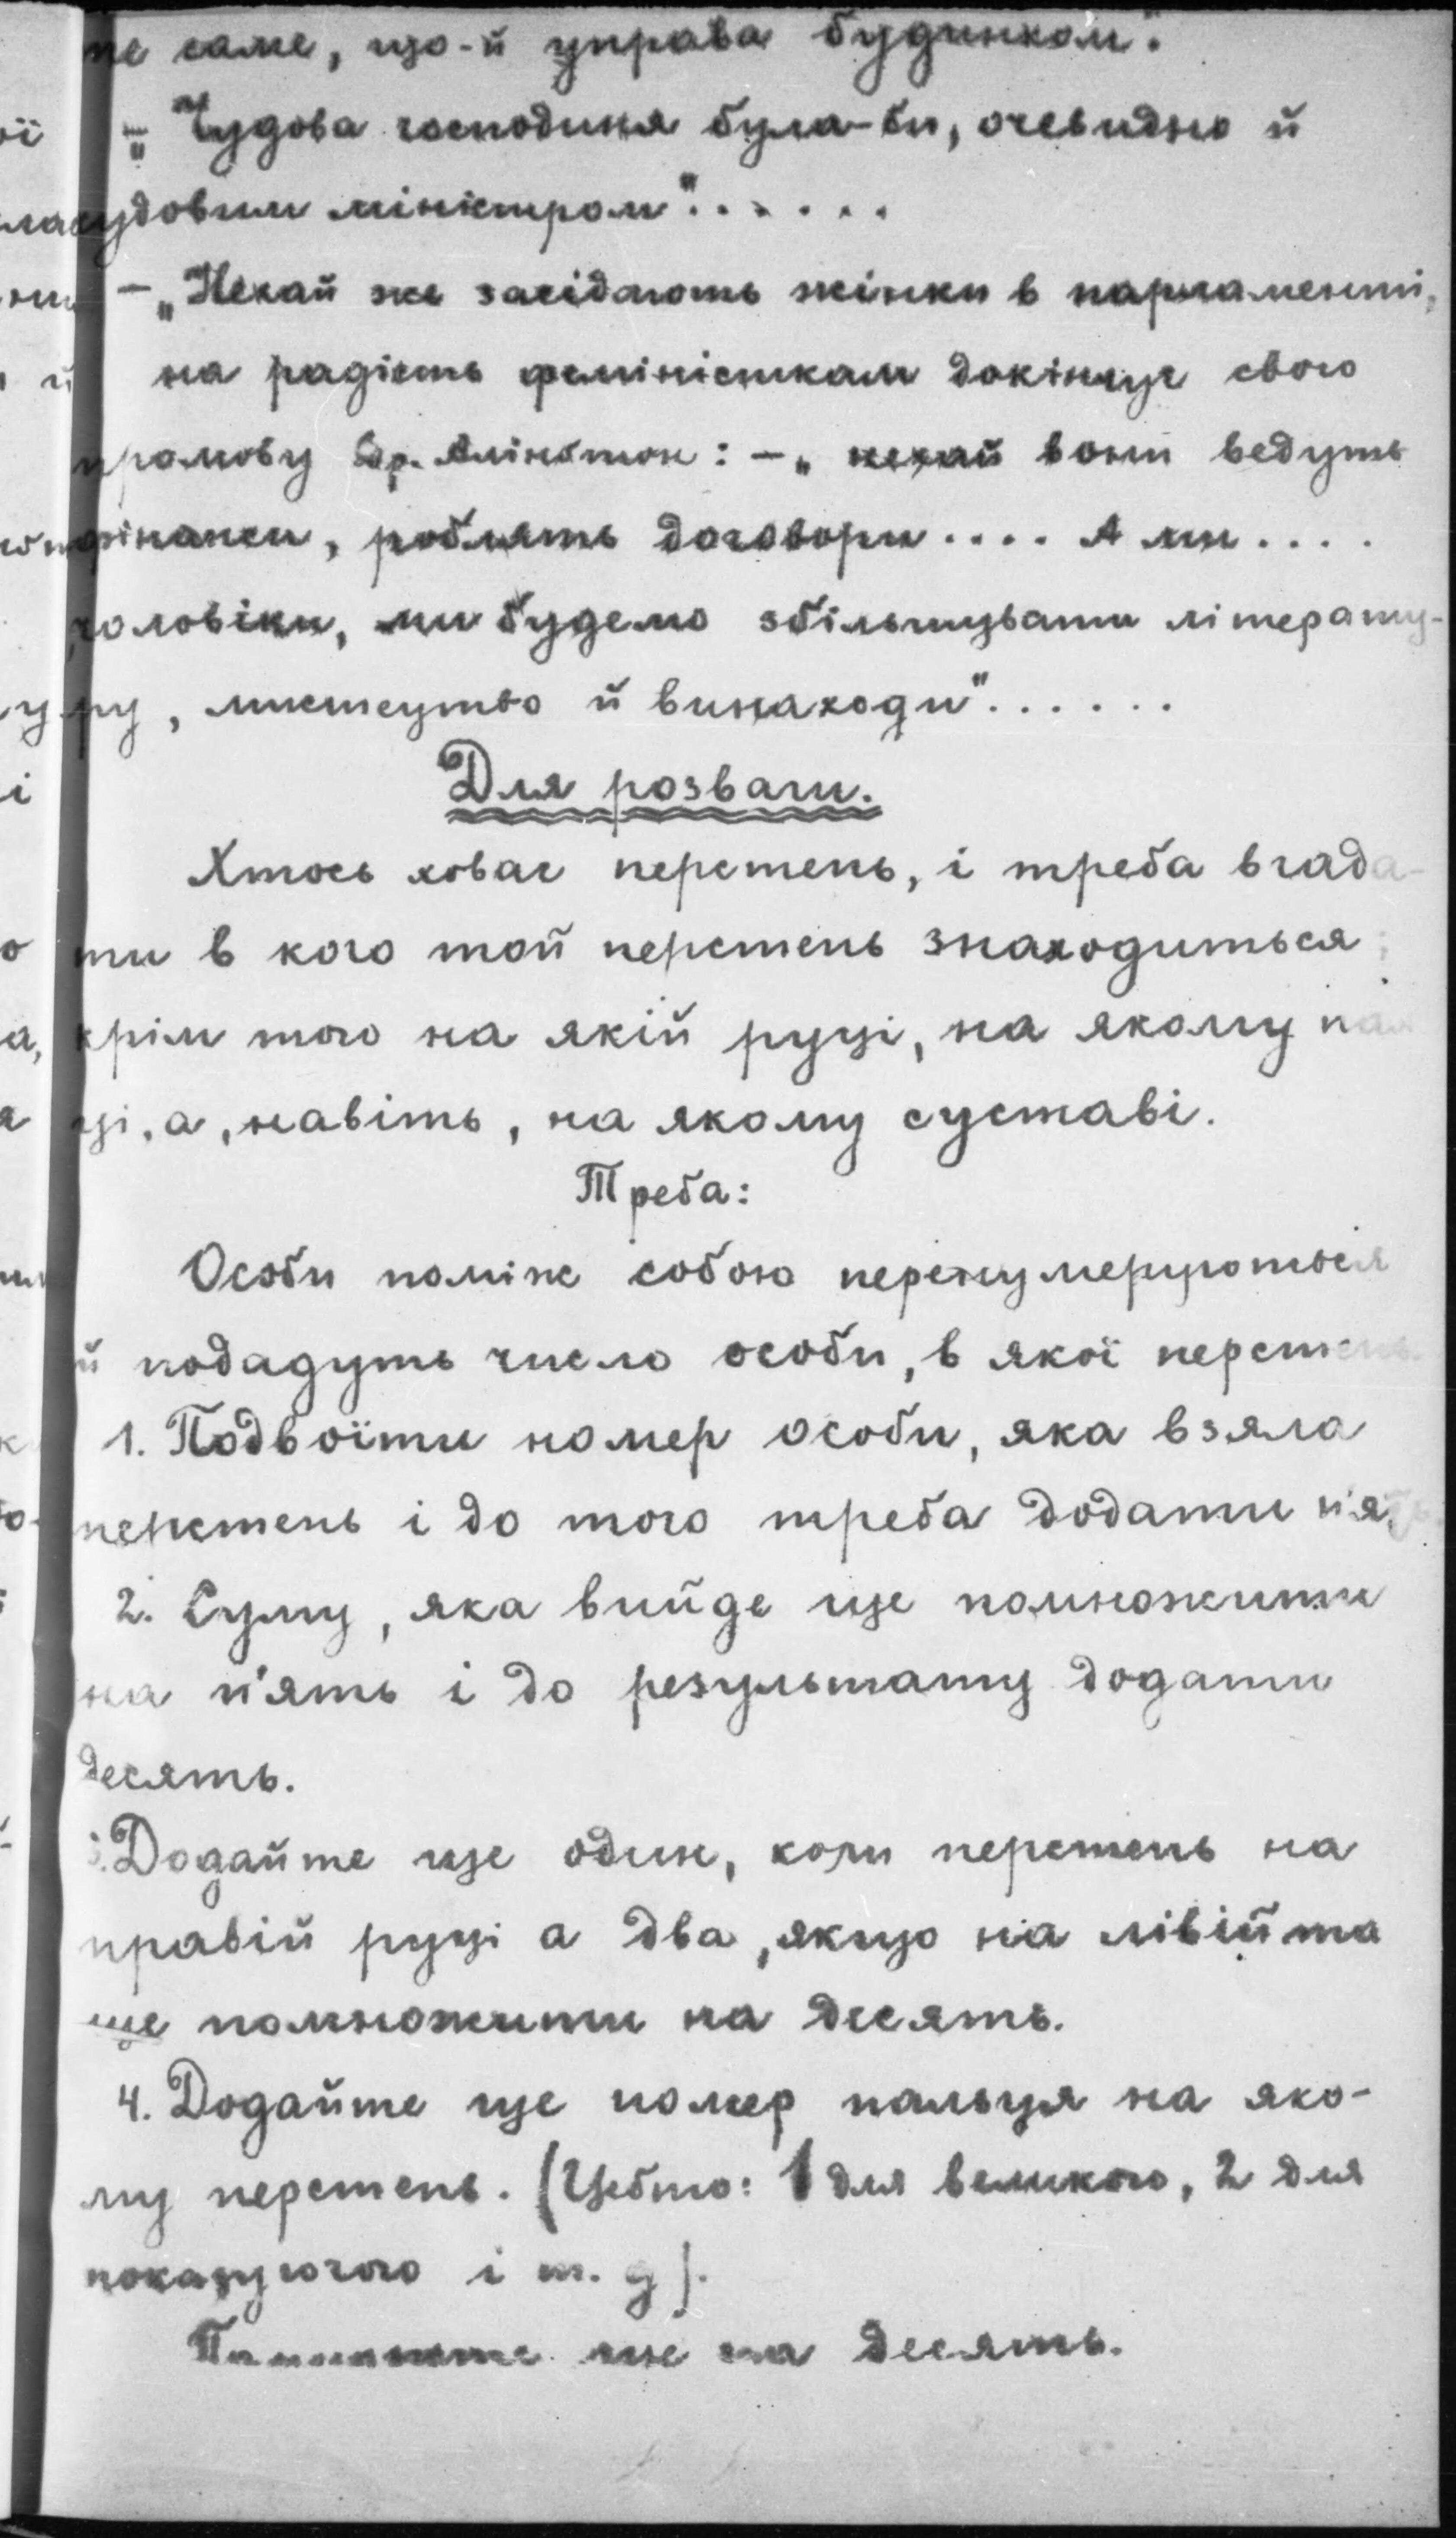 те саме, що-й управа будинком".
- „Чудова господиня була-би, очевидно й
чудовим міністром"......
- „Нехай же засідають жінки в парламенті,
на радість феміністкам докінчує свою
промову Др. Алінбтон: - „нехай вони ведуть
фінанси, роблять договори.... А ми....
чоловіки, ми будемо збільшувати літерату-
ру, мистецтво й винаходи"......
Для розваги.
Хтось ховає перстень, і треба вгада-
ти в кого той перстень знаходиться;
крім того на якій руці, на якому пал
ці, а, навіть, на якому суставі.
Треба:
Особи поміж собою перенумеруються
й подадуть число особи, в якої перстень.
1. Подвоїти номер особи, яка взяла
перстень і до того треба додати п'ять.
2. Суму, яка вийде ще помножити
на п'ять і до результату додати
десять.
3. Додайте ще один, коли перстень на
правій руці а два, якщо на лівій та
ще помножити на десять.
4. Додайте ще номер пальця на яко-
му перстень. (Цебто: 1 для великого, 2 для
показуючого і т. д).
Помножте ще на десять.